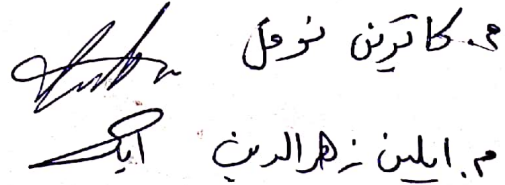 م. كاترين نوفل
م. ايلين زهر الدين ايلين